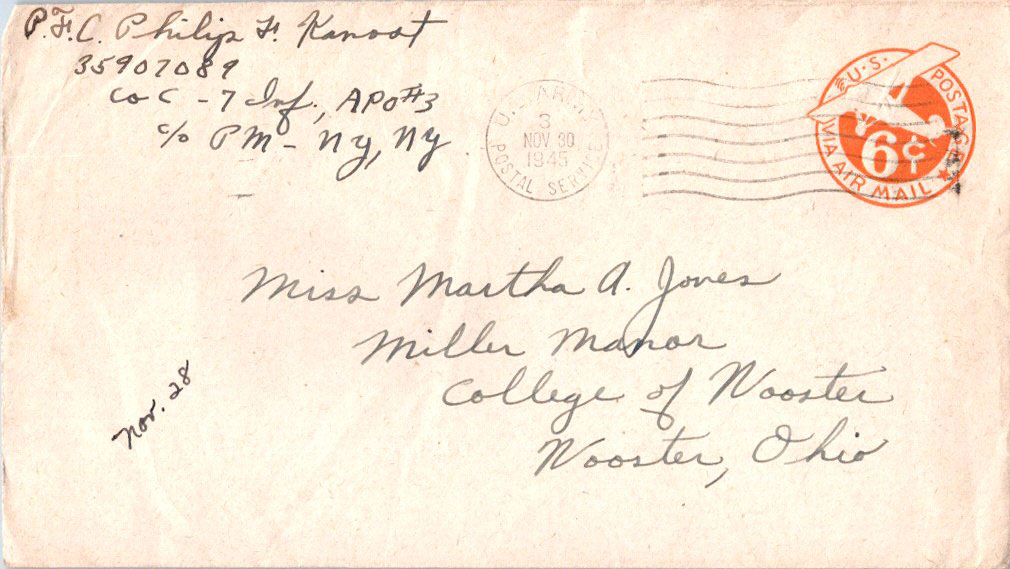 P.F.C. Philip F. Kanost
35907089
Co C - 7 Inf., APO #3
c/o PM - Ny, Ny
U.S. ARMY
3
NOV 30
1945
POSTAL SERVICE
U.S. POSTAGE
6¢
VIA AIR MAIL
Miss Martha A. Jones
Miller Manor
College of Wooster
Wooster, Ohio
Nov. 28